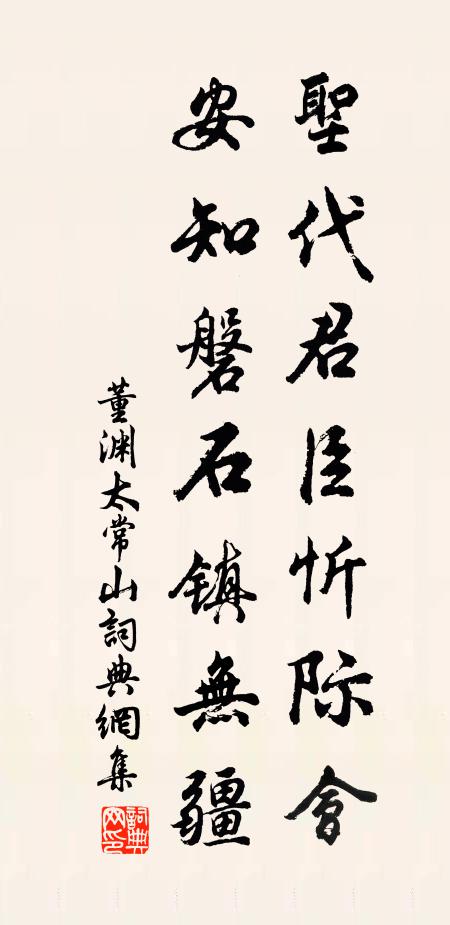 聖代君臣忻际會
安知磐石镇無疆
董渊太常山詞典網集
詞典網印